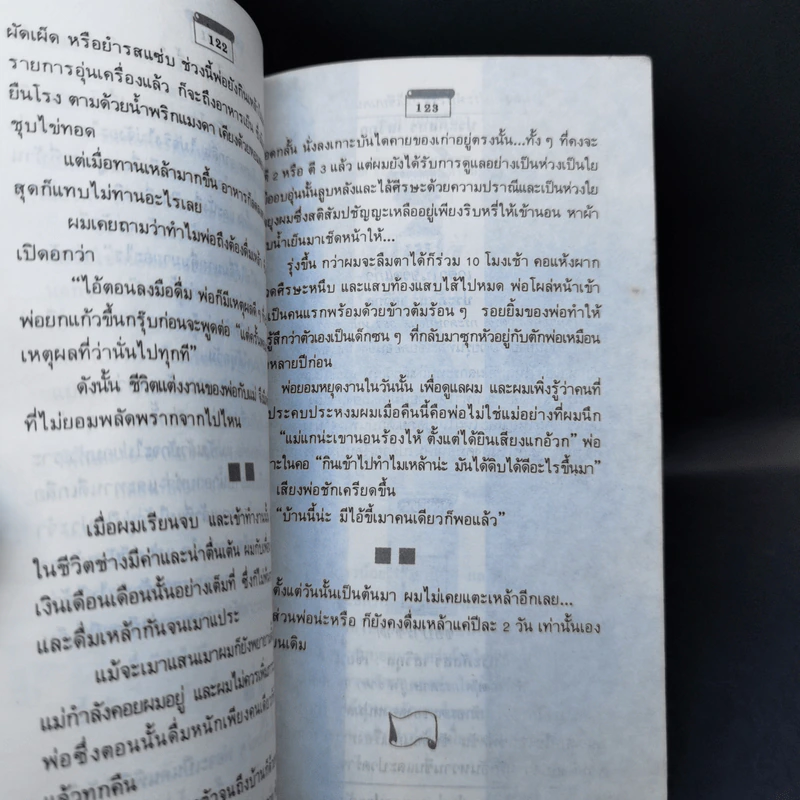 122
ผัดเผ็ด หรือยำรสแซ่บ ช่วงนี้พ่อยังกินเหล้า
รายการอุ่นเครื่องแล้ว ก็จะถึงอาหารเย็น
ยืนโรง ตามด้วยน้ำพริกแมงดา เคียงด้วย
ชุบไข่ทอด
แต่เมื่อทานเหล้ามากขึ้น อาหาร
สุดก็แทบไม่ทานอะไรเลย
ผมเคยถามว่าทำไมพ่อถึงต้องดื่มเหล้า
เปิดอกว่า
“ไอ้ตอนลงมือดื่ม พ่อก็มีเหตุผลดี ๆ
พ่อยกแก้วขึ้นกรุ๊บก่อนจะพูดต่อ “แต่
เหตุผลที่ว่านั่นไปทุกที”
ดังนั้น ชีวิตแต่งงานของพ่อกับแม่
ที่ไม่ยอมพลัดพรากจากไปไหน
เมื่อผมเรียนจบ และเข้าทำงาน
ในชีวิตช่างมีค่าและน่าตื่นเต้น ผมกับ
เงินเดือนเดือนนั้นอย่างเต็มที่ ซึ่งก็
และดื่มเหล้ากันจนเมาแประ
แม้จะเมาแสนเมาผมก็ยังพยายาม
แม่กำลังคอยผมอยู่ และผมไม่ควรเพิ่ม
พ่อซึ่งตอนนั้นดื่มหนักเพียงคนเดียว
แล้วทุกคืน
จนถึงบ้านก็
123
อดกลั้น นั่งลงเกาะบันไดคายของเก่าอยู่ตรงนั้น...ทั้ง ๆ ที่คงจะ
ตี 2 หรือ ตี 3 แล้ว แต่ผมยังได้รับการดูแลอย่างเป็นห่วงเป็นใย
มืออบอุ่นนั้นลูบหลังและไล้ศีรษะด้วยความปรานีและเป็นห่วงใย
ยุงผมซึ่งสติสัมปชัญญะเหลืออยู่เพียงริบหรี่ให้เข้านอน หาผ้า
บน้ำเย็นมาเช็ดหน้าให้...
รุ่งขึ้น กว่าผมจะลืมตาได้ก็ร่วม 10 โมงเช้า คอแห้งผาก
วดศีรษะหนึบ และแสบท้องแสบไส้ไปหมด พ่อโผล่หน้าเข้า
เป็นคนแรกพร้อมด้วยข้าวต้มร้อน ๆ รอยยิ้มของพ่อทำให้
รู้สึกว่าตัวเองเป็นเด็กซน ๆ ที่กลับมาซุกหัวอยู่กับตักพ่อเหมือน
หลายปีก่อน
พ่อยอมหยุดงานในวันนั้น เพื่อดูแลผม และผมเพิ่งรู้ว่าคนที่
ประคบประหงมผมเมื่อคืนนี้คือพ่อไม่ใช่แม่อย่างที่ผมนึก
“แม่แกน่ะเขานอนร้องไห้ ตั้งแต่ได้ยินเสียงแกอ้วก” พ่อ
าะในคอ “กินเข้าไปทำไมเหล้าน่ะ มันได้ดิบได้ดีอะไรขึ้นมา”
เสียงพ่อชักเครียดขึ้น
“บ้านนี้น่ะ มีไอ้ขี้เมาคนเดียวก็พอแล้ว”
ตั้งแต่วันนั้นเป็นต้นมา ผมไม่เคยแตะเหล้าอีกเลย...
ส่วนพ่อน่ะหรือ ก็ยังคงดื่มเหล้าแค่ปีละ 2 วัน เท่านั้นเอง
นเดิม